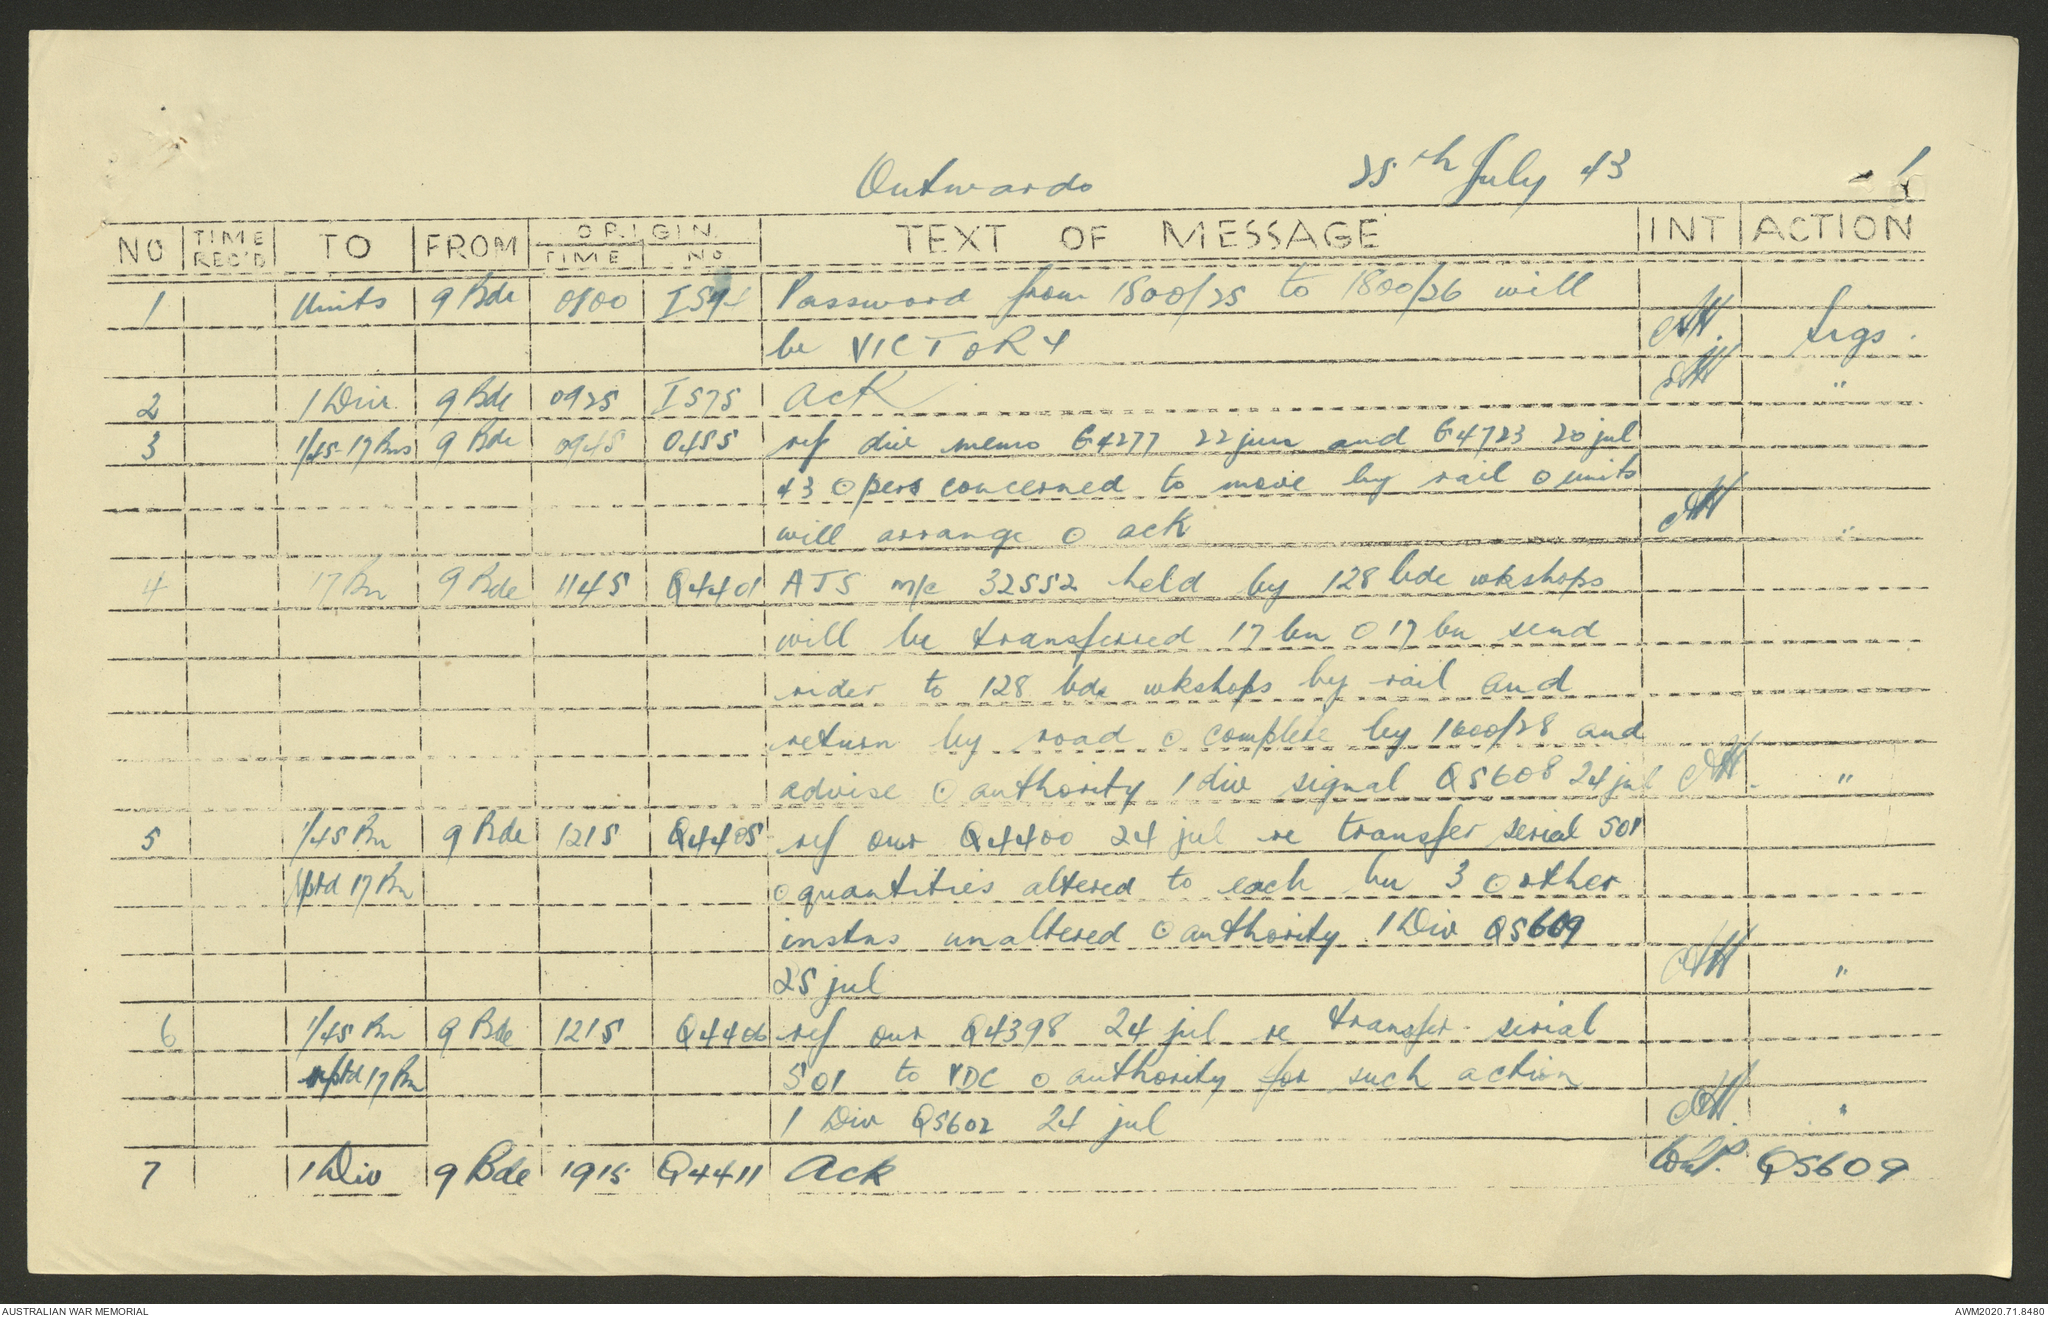 Outwards 25th July 43 1
NO TIME REC'D TO FROM ORIGIN TIME NO TEXT OF MESSAGE INT ACTION
1 Units 9 Bde 0800 I574 Password from 1800/25 to 1800/26 will
be VICTORY Sigs.
2 1 Div 9 Bde 0925 I575 ack "
3 1/45-17 Bns 9 Bde 0945 O455 ref div memo G4277 22 jun and G4723 20 jul
43 ⊙ pers concerned to move by rail ⊙ units
will arrange ⊙ ack "
4 17 Bn 9 Bde 1145 Q4401 ATS m/c 32552 held by 128 bde wkshops
will be transferred 17 bn ⊙ 17 bn send
rider to 128 bde wkshops by rail and
return by road ⊙ complete by 1600/28 and
advise ⊙ authority 1 div signal QS608 24 jul "
5 1/45 Bn 9 Bde 1215 Q4405 ref our Q4400 24 jul re transfer serial 501
rptd 17 Bn ⊙ quantities altered to each bn 3 ⊙ other
instns unaltered ⊙ authority 1 Div QS609
25 jul "
6 1/45 Bn 9 Bde 1215 Q4406 ref our Q4398 24 jul re transfer serial
rptd 17 Bn 501 to VDC ⊙ authority for such action
1 Div QS602 24 jul "
7 1 Div 9 Bde 1915 Q4411 Ack QS609
AUSTRALIAN WAR MEMORIAL AWM2020.71.8480